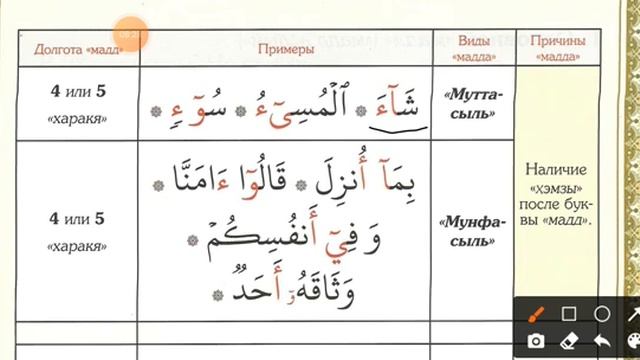 09:23
Долгота «мадд» Примеры Виды «мадда» Причины «мадда»
4 или 5 «харакя» شَآءَ ۞ ٱلْمُسِىٓءُ ۞ سُوٓءٍ ۞ «Мутта-
сыль»
4 или 5 «харакя» بِمَآ أُنزِلَ ۞ قَالُوٓا۟ ءَامَنَّا ۞ «Мунфа-
сыль»
وَ فِىٓ أَنفُسِكُمْ ۞
وَثَاقَهُۥٓ أَحَدٌ ۞
Наличие
«хэмзы»
после бук-
вы «мадд».